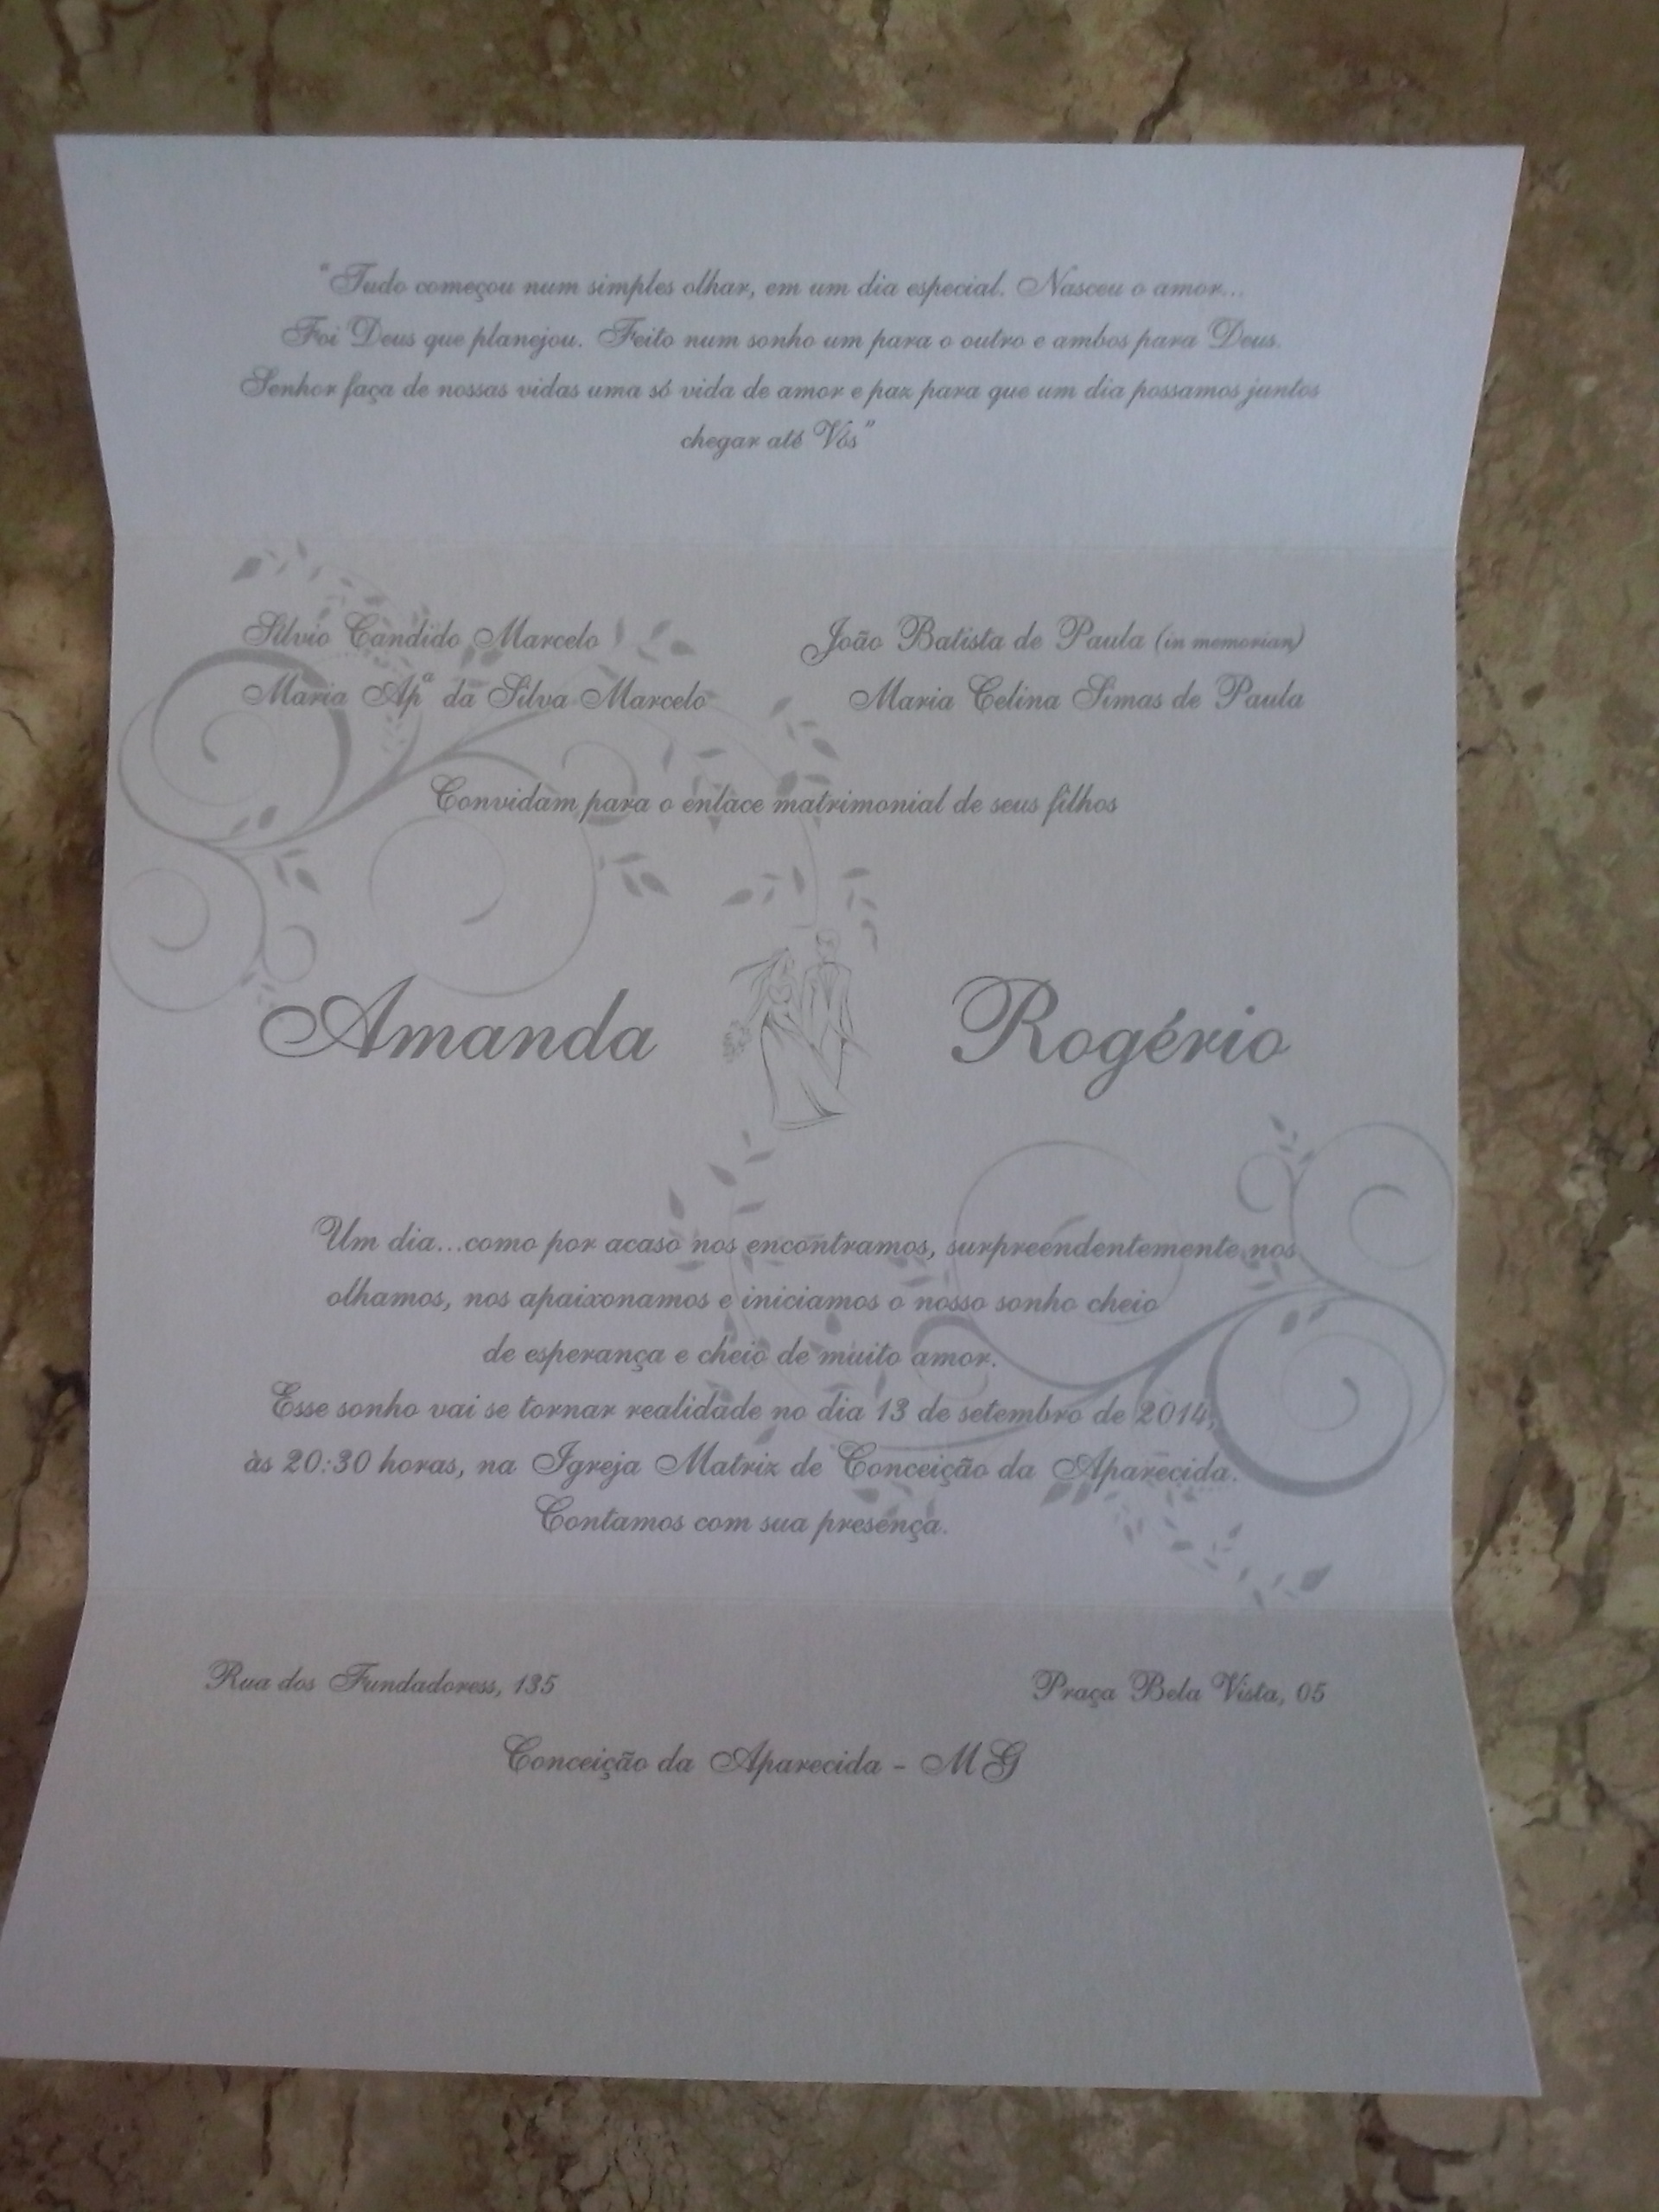 "Tudo começou num simples olhar, em um dia especial. Nasceu o amor...
Foi Deus que planejou. Feito num sonho um para o outro e ambos para Deus.
Senhor faça de nossas vidas uma só vida de amor e paz para que um dia possamos juntos
chegar até Vós"
Silvio Candido Marcelo João Batista de Paula (in memorian)
Maria Apª da Silva Marcelo Maria Celina Simas de Paula
Convidam para o enlace matrimonial de seus filhos
Amanda Rogério
Um dia...como por acaso nos encontramos, surpreendentemente nos
olhamos, nos apaixonamos e iniciamos o nosso sonho cheio
de esperança e cheio de muito amor.
Esse sonho vai se tornar realidade no dia 13 de setembro de 2014,
às 20:30 horas, na Igreja Matriz de Conceição da Aparecida.
Contamos com sua presença.
Rua dos Fundadoress, 135 Praça Bela Vista, 05
Conceição da Aparecida - MG